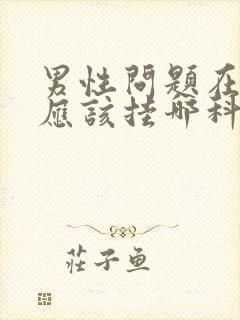 男性問題在
應該挂哪科
莊子魚